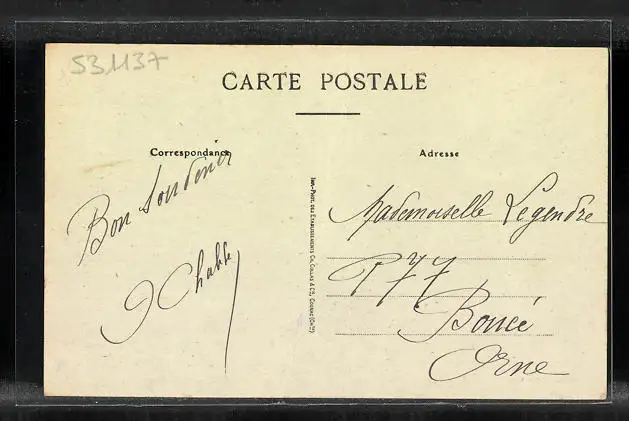 531137
CARTE POSTALE
Correspondance
Adresse
Bon souvenir
Mademoiselle Legendre
PTT
Boucé
Orne
Imp.-Phot. des Etablissements Ch. Collas & Cie, Cognac (Chte)